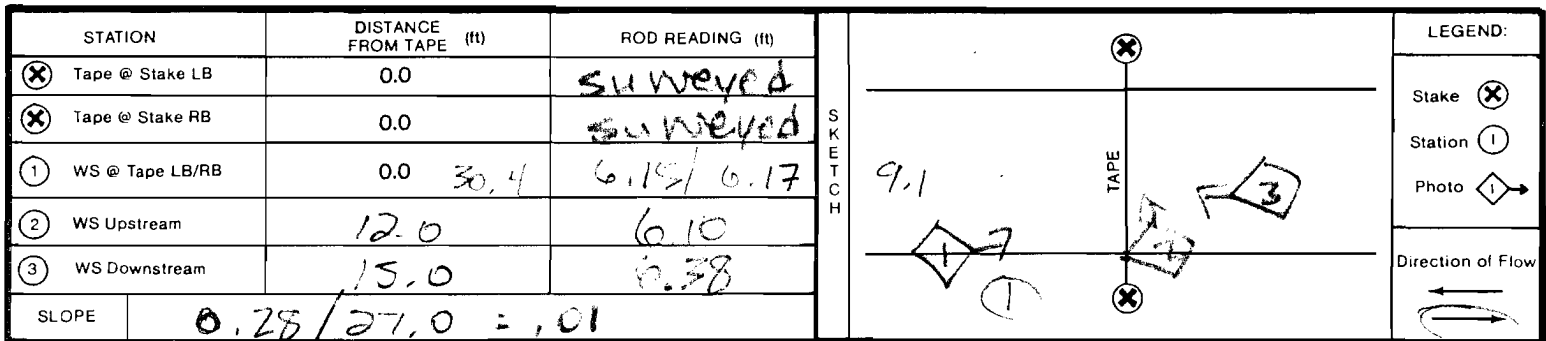 STATION DISTANCE FROM TAPE (ft) ROD READING (ft)
Tape @ Stake LB 0.0 surveyed
Tape @ Stake RB 0.0 surveyed
1 WS @ Tape LB/RB 0.0 30.4 6.15/ 6.17
2 WS Upstream 12.0 6.10
3 WS Downstream 15.0 6.38
SLOPE 0.28/27.0 = .01
SKETCH
TAPE
9.1
1
2
3
1
LEGEND:
Stake
Station 1
Photo 1
Direction of Flow